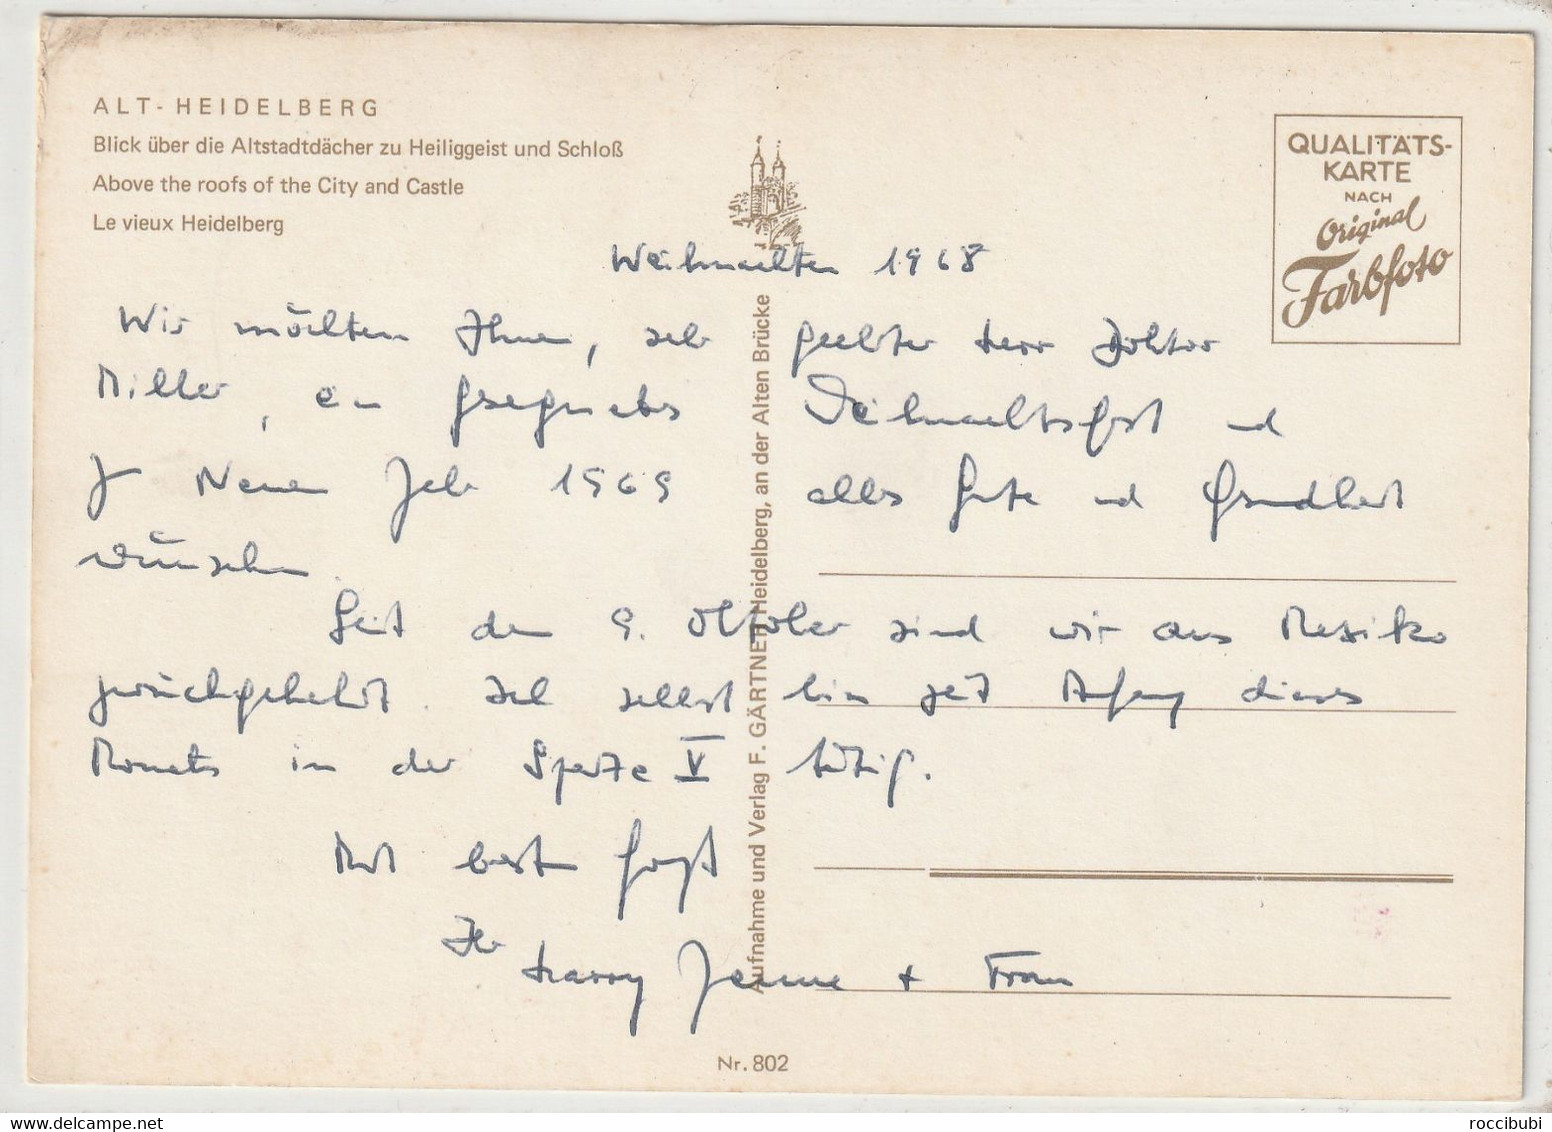 ALT-HEIDELBERG
Blick über die Altstadtdächer zu Heiliggeist und Schloß
Above the roofs of the City and Castle
Le vieux Heidelberg
QUALITÄTS-
KARTE
NACH
Original
Farbfoto
Weihnachten 1968
Wir möchten Ihnen, sehr geehrter Herr Doktor
Miller, ein gesegnetes Weihnachtsfest und
Neuen Jahr 1969 alles Gute und Gesundheit
wünschen.
Seit dem 9. Oktober sind wir aus Mexiko
zurückgekehrt. Ich selbst bin seit Anfang dieses
Monats in der V tätig.
Mit besten
Ihr Harry + Frau
Aufnahme und Verlag F. GÄRTNER, Heidelberg, an der Alten Brücke
Nr. 802
delcampe.net
roccibubi